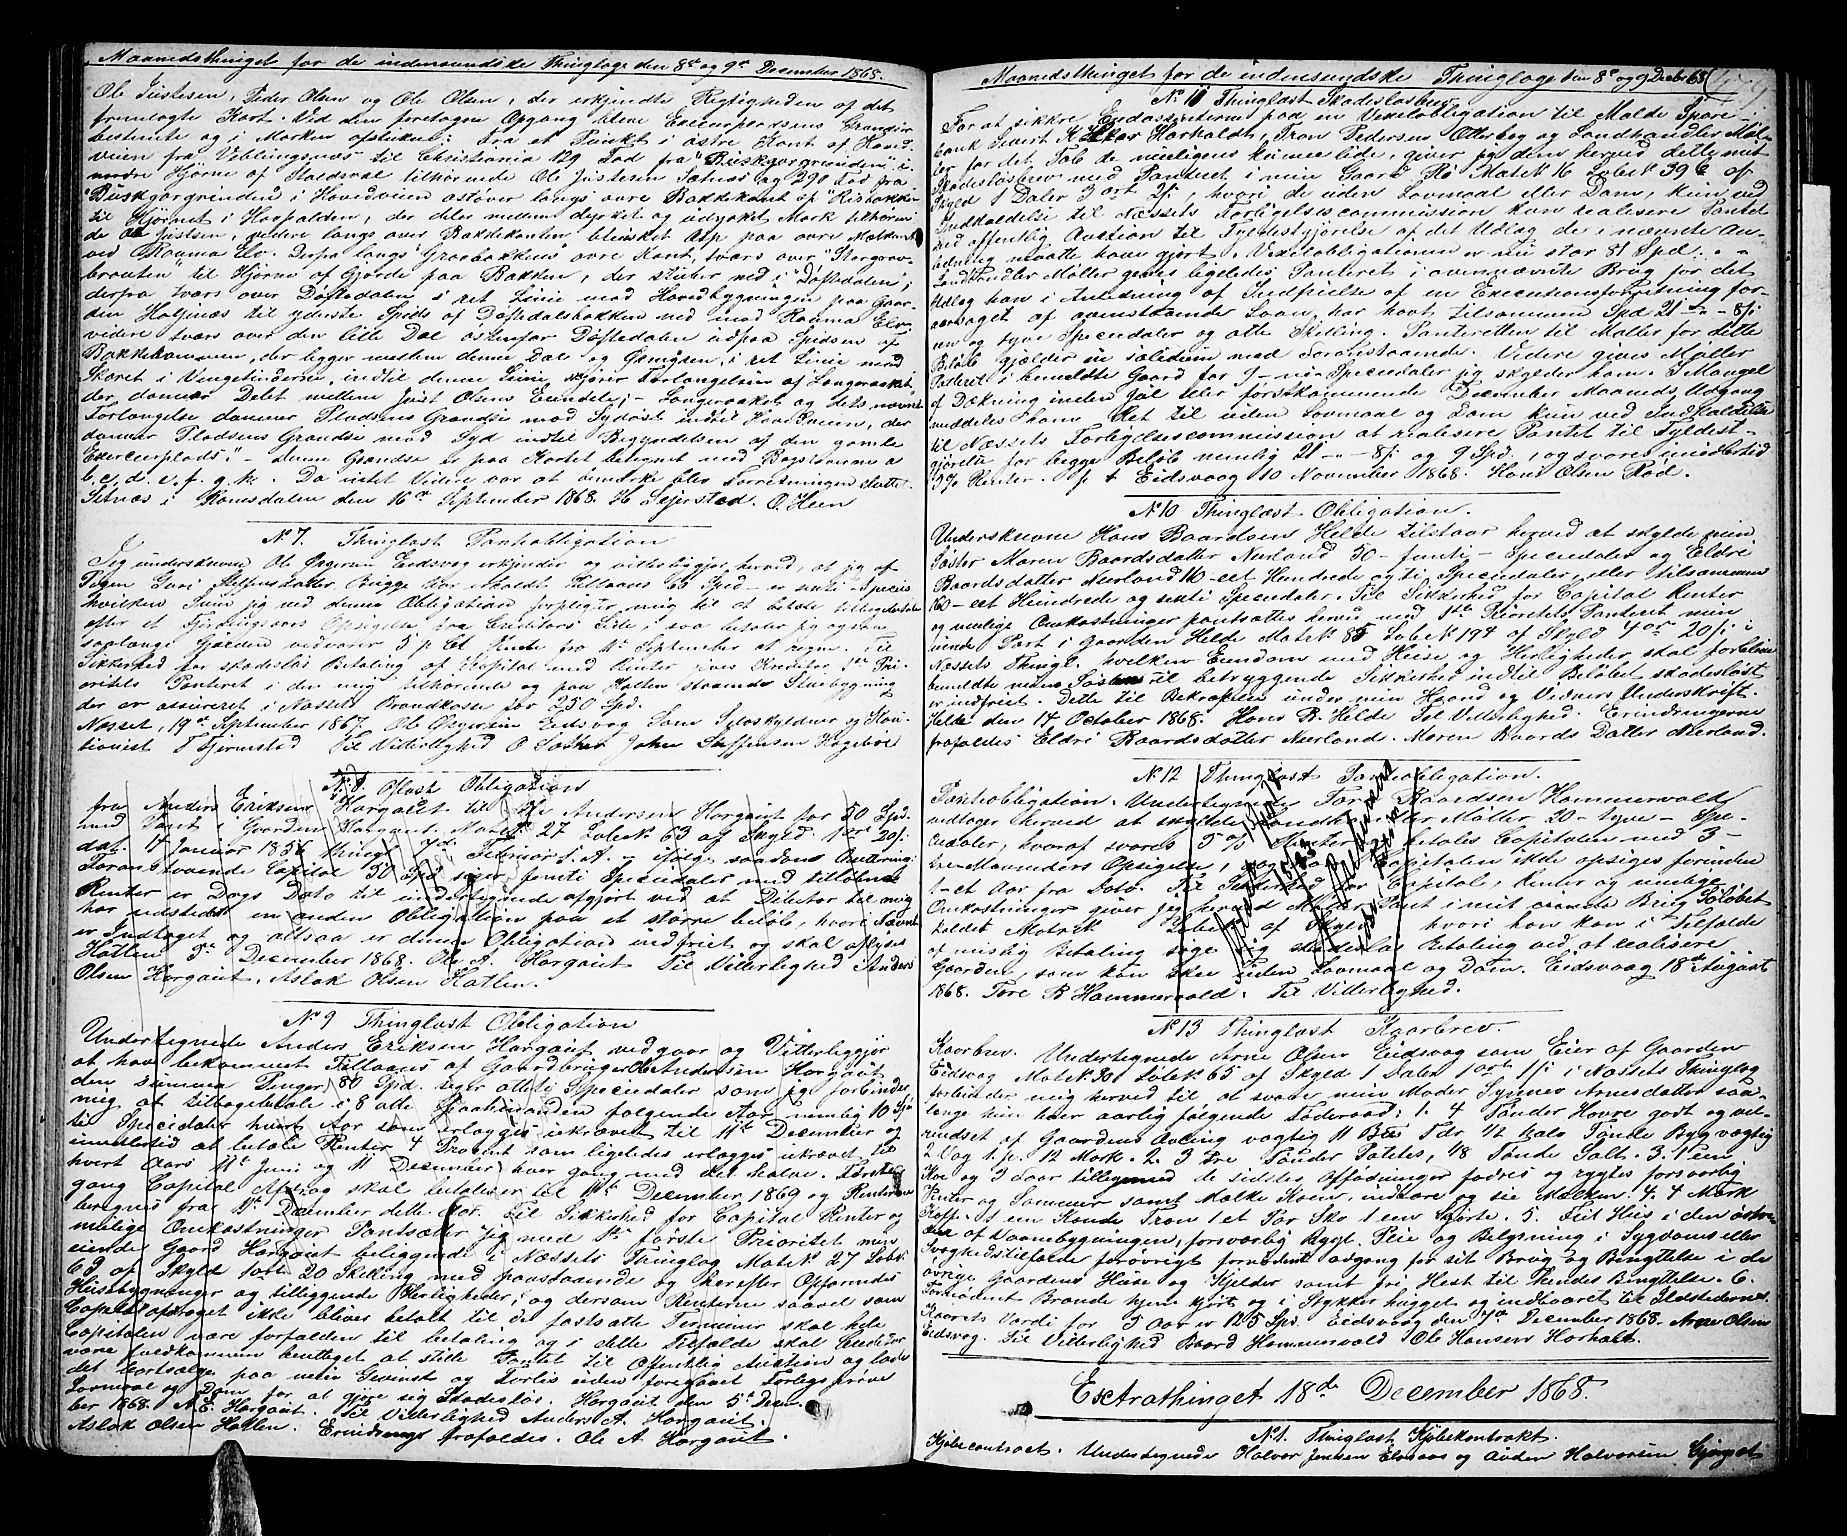 Maanedsthinget for de indensundske Thinglage den 8de og 9de December 1868.
Ole Justesen, Peder Olsen og Ole Olsen, der erkjendte Rigtigheden af det
fremlagte Kart. Ved den foretagne Opgang bleve Exerceerpladsens Grændser
bestemte og i Marken opstukne: fra et Punkt i østre Kant af Hoved-
veien fra Veblungsnæs til Christiania 129 Fod fra "Buskgorgrinden" i
nordre Hjørne af Stoldsval tilhørende Ole Justesen Sætnæs og 290 Fod fra
"Buskgorgrinden" i Hovedveien østover langs øvre Bakkekant af Risbakken
til Hjørnet i Havfalden, der deler mellem dyrket og udyrket Mark tilhøren-
de Ole Justsen, videre langs øver Bakkekanten blinket Asp paa øvre Mælen
ved Rauma Elv. Derfra langs Graabakkens øvre Kant, tværs over "Storgrov-
brauten" til Hjørne af Gjærde paa Bakken, der støder ned i "Døftedalen";
derfra tværs over Døftedalen i ret Linie mod Hovedbygningen paa Gaar-
den Halsnæs til yderste Spids af Døftedalsbakken ned mod Rauma Elv
videre tværs over den lille Dal østenfor Døftedalen udpaa Spidsen af
Bakkekammen, der ligger mellem denne Dal og Grovyden, i ret Linie mod
Skaret i Vengetinderne, indtil denne Linie skjærer Forlængelsen af Langvraaket
der danner Delet mellem Just Olsens Eiendele; - Langeraaket og dets nævnte
Forlængelse danner Pladsens Grændse mod Sydøst indtil Hovedveien, der
danner Pladsens Grændse mod Syd indtil Begyndelsen af den gamle
Exerceerplads." - Denne Grændse er paa Kartet betegnet med Bogstaverne a
b. c. d. e. f. g. h. Da intet Videre var at bemærke blev Forretningen sluttet.
Setnæs i Romsdalen den 16de September 1868. H. Sejersted. O. Heen
No 7. Thinglæst Pantobligation
Jeg underskrevne Ole Asgersen Eidsvog erkjender og vitterliggjør herved, at jeg af
Pigen Guri Steffensdatter Brugge har erholdt tillaans 60 Spd - er sexti - Species
hvilken Sum jeg ved denne Obligation forpligter mig til at betale tilbagebetale
efter et Fjerdingaars Opsigelse fra Creditors Side, i saa betaler jeg ogsaa
saalænge Gjælden vedvarer 5 p. Ct. Rente fra 11te September at regne. Til
Sikkerhed for skadesløs Betaling af Capital med Renter gives Kreditor 1ste Pri-
oritets Panteret i den mig tilhørende og paa Halten staaende Stuebygning
der er assureret i Næssets Brandkasse for 250 Spd.
Næsset, 19de September 1867. Ole Asgersen Eidsvog Som Selvskyldner og Kau-
tionist T Fjermestad Til Vitterlighed O Sæther John Steffensen Hagebøe
No 8. Aflæst Obligation
fra Anders Eriksen Horgøut til Ole Andersen Horgøut for 50 Spd.
med Pant i Gaarden Horgøut. Matr No 27 Løbe No 63 af Skyld 1 ort 20 s.
dat. 14 Januar 1856 thingl. 7de Februar s. A. - ifølge saadan Qvittering:
Foranstaaende Capital 50 Spd siger femti Speciedaler med tilløbne
Renter er Dags Dato til undertegnede afgjort ved at Debitor til mig
har udstedet en anden Obligation paa et større beløb, hvori Nævnte
er Indtaget og altsaa er denne Obligation indfriet og skal aflyses
Hatlen 5te December 1868. Ole A. Horgøut Til Vitterlighed Anders
Olsen Horgøut. Aslak Olsen Hatlen.
No 9 Thinglæst Obligation
Undertegnede Anders Eriksen Horgøut vedgaar og Vitterliggjør
at have bekommet Tillaans af Gaardbruger Ole Andersen Horgøut
den summa Penger 80 Spd. siger otteti Speciedaler som jeg forbinder
mig at tilbagebetale i 8 otte paahinanden følgende Aar nemlig 10 Spd
ti Speciedaler hvert Aar som erlægges ukrævet til 11te December og
imidlertid at betale Renter 4 Procent som ligeledes erlægges ukrævet til
hvert Aars 11te Juni og 11 December hver gang med det halve. Første
gang Capital Afdrag skal betales er til 11te December 1869 og Renterne
beregnes fra 11te December dette Aar. Til Sikkerhed for Capital Renter og
mulige Omkostninger Pantsætter jeg med 1ste første Prioritet min
eiende Gaard Horgøut beliggende i Næssets Thinglag Matr No 27 Løbe No
63 af Skyld 1 ort 20 Skilling med paastaaende og herefter Opførendes
Husebygninger og tilliggende Herligheder; og dersom Renterne saavel som
Capital afdraget ikke bliver betalt til de fastsatte Terminer skal hele
Capitalen være forfalden til betaling og i dette Tilfælde skal Creditor
være fuldkommen berettiget at stille Pantet til Offentlig Auction og lade
det bortsælge paa min Gevinst og Forlis uden foregaaet Forligsprøve
Lovmaal og Dom for at gjøre sig Skadesløs. Horgøut den 5te Decem-
ber 1868. A. E. Horgøut. Til Vitterlighed Anders A. Horgøut.
Aslak Olsen Hatlen. Erindrings frafaldes. Ole A. Horgøut.
Maanedsthinget for de indensundske Thinglage den 8de og 9 Decbr 68
No 11 Thinglæst Skadesløsbrev
For at sikkre Endossenterne paa en Vexelobligation til Molde Spare-
bank Sivert K. Horhaldt, Iron Pedersen Otterbeg og Landhandler Møl-
ler for det Tab de muligens kunne lide, giver jeg dem herved dette mit
Skadesløsbrev med Panteret i min Gaard Rø Matr No 16 Løbe No 39 c af
Skyld 1 Daler 3 ort 2 s., hvori de uden Lovmaal eller Dom, kun ved
Indkaldelse til Næssets Forligelsescommission kan realisere Pantet
ved offentlig Auction til Fyldestgjørelse af det Udlæg de i nævnte An-
ledning maatte have gjort. Vexelobligationen er nu stor 81 Spd.
Landhandler Møller gives ligeledes Panteret i ovennævnte Brug for det
Udlæg han i Anledning af Indfrielse af en Executionsforretning for-
aarsaget af ovenstaaende Laan, har havt, tilsammen Spd 21 - " - 8 s.
en og tyve Speciedaler og otte Skilling. Panteretten til Møller for dette
Beløb gjælder in solidum med Foranstaaende. Videre gives Møller
Panteret i bemeldte Gaard for 9 - ni Speciedaler jeg skylder ham. I Mangel
af Dækning inden Jul eller førstkommende December Maaneds Udgang
meddeles ham Ret til uden Lovmaal og Dom kun ved Indkaldelse
til Næssets Forligelsescommission at realisere Pantet til Fyldest-
gjørelse for begge Beløb nemlig 21 - " - 8 s. og 9 Spd., og svares imidlertid
5 % Renter. p t Eidsvaag 10 November 1868. Hans Olsen Rød.
No 10 Thinglæst Obligation.
Underskrevne Hans Baardsen Helde tilstaar herved at skylde min
Søster Maren Baardsdatter Nerland 50 - femti - Speciedaler og Eldri
Baardsdatter Nerland 110 - eet Hundrede og ti Speciedaler, eller tilsammen
160 - eet Hundrede og sexti Speciedaler. Til Sikkerhed for Capital Renter
og mulige Omkostninger pantsættes herved med 1ste Prioritets Panteret min
eiende Part i Gaarden Helde Matr No 85 Løbe No 194 af Skyld 4 ort 20 s. i
Næssets Thingl. hvilken Eiendom med Huse og Herligheder skal forblive
bemeldte mine Søstre til betryggende Sikkerhed indtil Beløbet skadesløst
er indfriet. Dette til Bekræftelse under min Haand og Vidners Underskrift.
Helde den 14 October 1868. Hans B. Helde Til Vitterlighed. Erindringerne
frafaldes Eldri Baardsdatter Nerland. Maren Baards Datter Nerland.
No 12 Thinglæst Pantobligation.
Pantobligation. Undertegnede Tore Baardsen Hammervold
vedtager herved at skylde Landhandler Møller 20 - tyve - Spe-
ciedaler, hvoraf svares 5 % Renter betales Capitalen med 3 -
tre Maaneders Opsigelse, Capitalen ikke opsiges forinden
1 - et Aar fra Dato. Til Sikkerhed for Capital, Renter og mulige
Omkostninger giver jeg herved Møller Pant i mit eiende Brug Sølebøt
kaldet Matr No Løbe No af Skyld hvori han kan i Tilfælde
af mislig Betaling søge sig skadesløs Betaling ved at realisere
Gaarden, som kan skee uden Lovmaal og Dom. Eidsvaag 18de August
1868. Tore B Hammervold. Til Vitterlighed.
No 13 Thinglæst Kaarbrev.
Kaarbrev. Undertegnede Arne Olsen Eidsvog som Eier af Gaarden
Eidsvog Matr No 30 Løbe No 65 af Skyld 1 Daler 1 ort 1 s. i Næssets Thinglag
forbinder mig herved til at svare min Moder Synnev Arnesdatter saa-
længe hun lever aarlig følgende Føderaad: 1. 4 Tønder Havre godt og vel-
rendset af Gaardens Avling vægtig 11 Bpd Tdr 1/2 halv Tønde Byg vægtig
2 Vog 1 p. 12 Mark. 2. 3 Tre Tønder Potetes, 1/8 Tønde Salt. 3. 1 een
Koe og 3 Saar tilligemed de sidstes Affødninger fodres og røgtes forsvarlig
Vinter og Sommer samt Malke Koen, indbære og sie Mælken. 4. 4 Mark
Kaffe. 1 een Kande Tran 1 et Par Sko 1 een Skjorte. 5. Frit Hus i den østre
Ende af Vaanebygningen, forsvarlig Røgt, Pleie og Betjening i Sygdoms eller
Svaghedstilfælde forøvrigt fornødent adgang for sit Brug og Benyttelse i de
øvrige Gaardens Huse og Kjelder samt fri Hest til Hendes Benyttelse. 6.
Fornødent Brænde hjem kjørt og i Stykker hugget og indbaaret til Ildstederne.
Kaarets Værdi for 5 Aar er 125 Spd. Eidsvaag den 7de December 1868. Arne Olsen
Eidsvog. Til Vitterlighed Baard Hammervold Ole Hansen Horhalt.
Extrathinget 18de December 1868.
No 1. Thinglæst Kjøbekontrakt.
Kjøbecontract. Undertegnede Halvor Jensen Elvsaas og Auden Halvorsen Gjerset